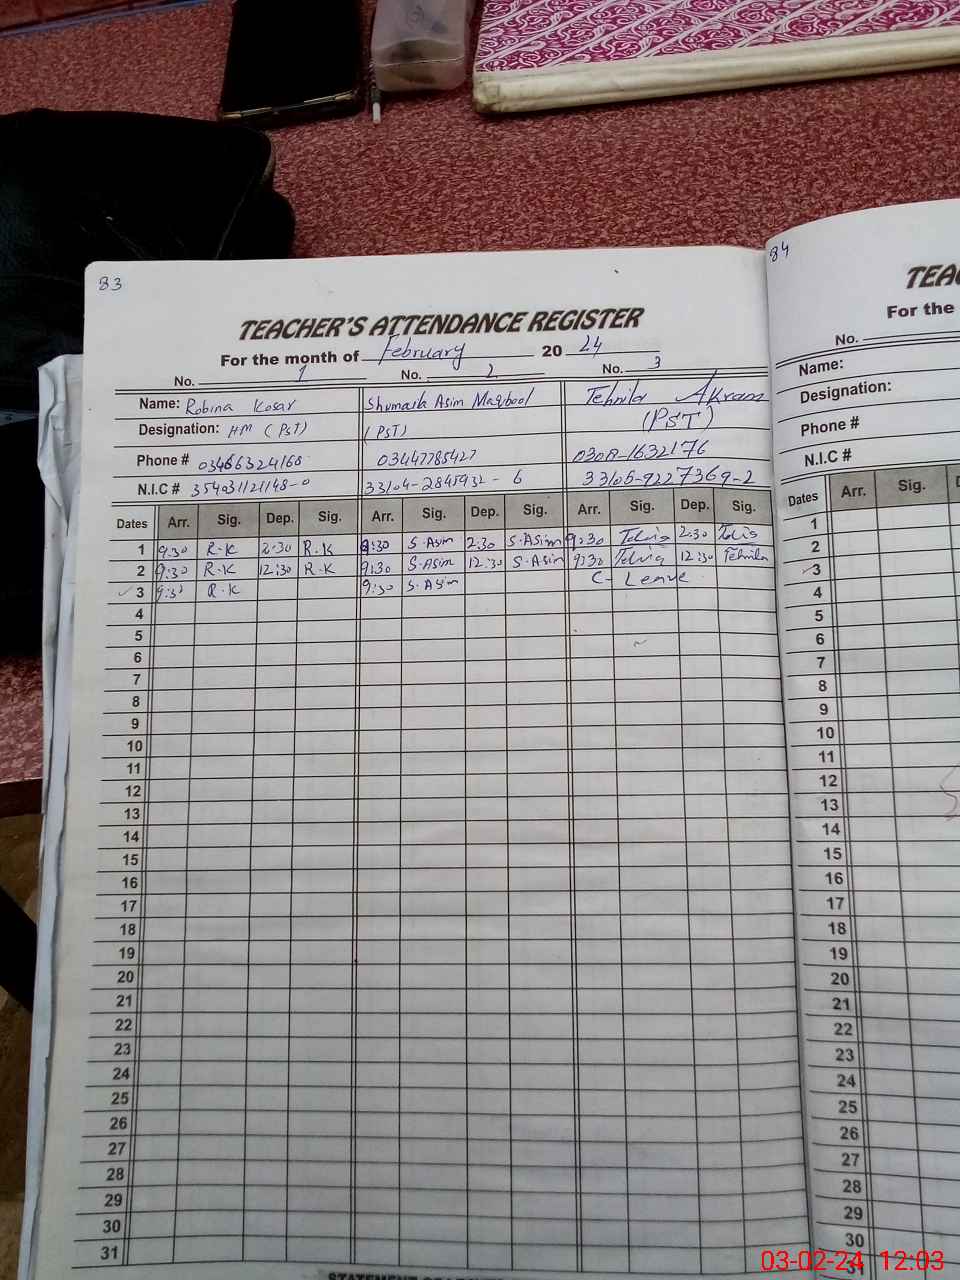 83
TEACHER'S ATTENDANCE REGISTER
For the month of February 2024
No. 1 No. 2 No. 3
Name: Robina Kosar Shumaila Asim Maqbool Tehnila Akram
Designation: HM (PST) (PST) (PST)
Phone # 03466324168 03447785427 0308-1632176
N.I.C # 354031121148-0 33104-2845932-6 33105-9227369-2
Dates Arr. Sig. Dep. Sig. Arr. Sig. Dep. Sig. Arr. Sig. Dep. Sig.
1 9:30 R.K 2:30 R.K 9:30 S.Asim 2:30 S.Asim 9:30 2:30
2 9:30 R.K 12:30 R.K 9:30 S.Asim 12:30 S.Asim 9:30 12:30 Tehnila
3 9:30 R.K 9:30 S.Asim C- Leave
4
5
6
7
8
9
10
11
12
13
14
15
16
17
18
19
20
21
22
23
24
25
26
27
28
29
30
31
84
TEAC
For the
No.
Name:
Designation:
Phone #
N.I.C #
Dates Arr. Sig.
1
2
3
4
5
6
7
8
9
10
11
12
13
14
15
16
17
18
19
20
21
22
23
24
25
26
27
28
29
30
31
03-02-24 12:03